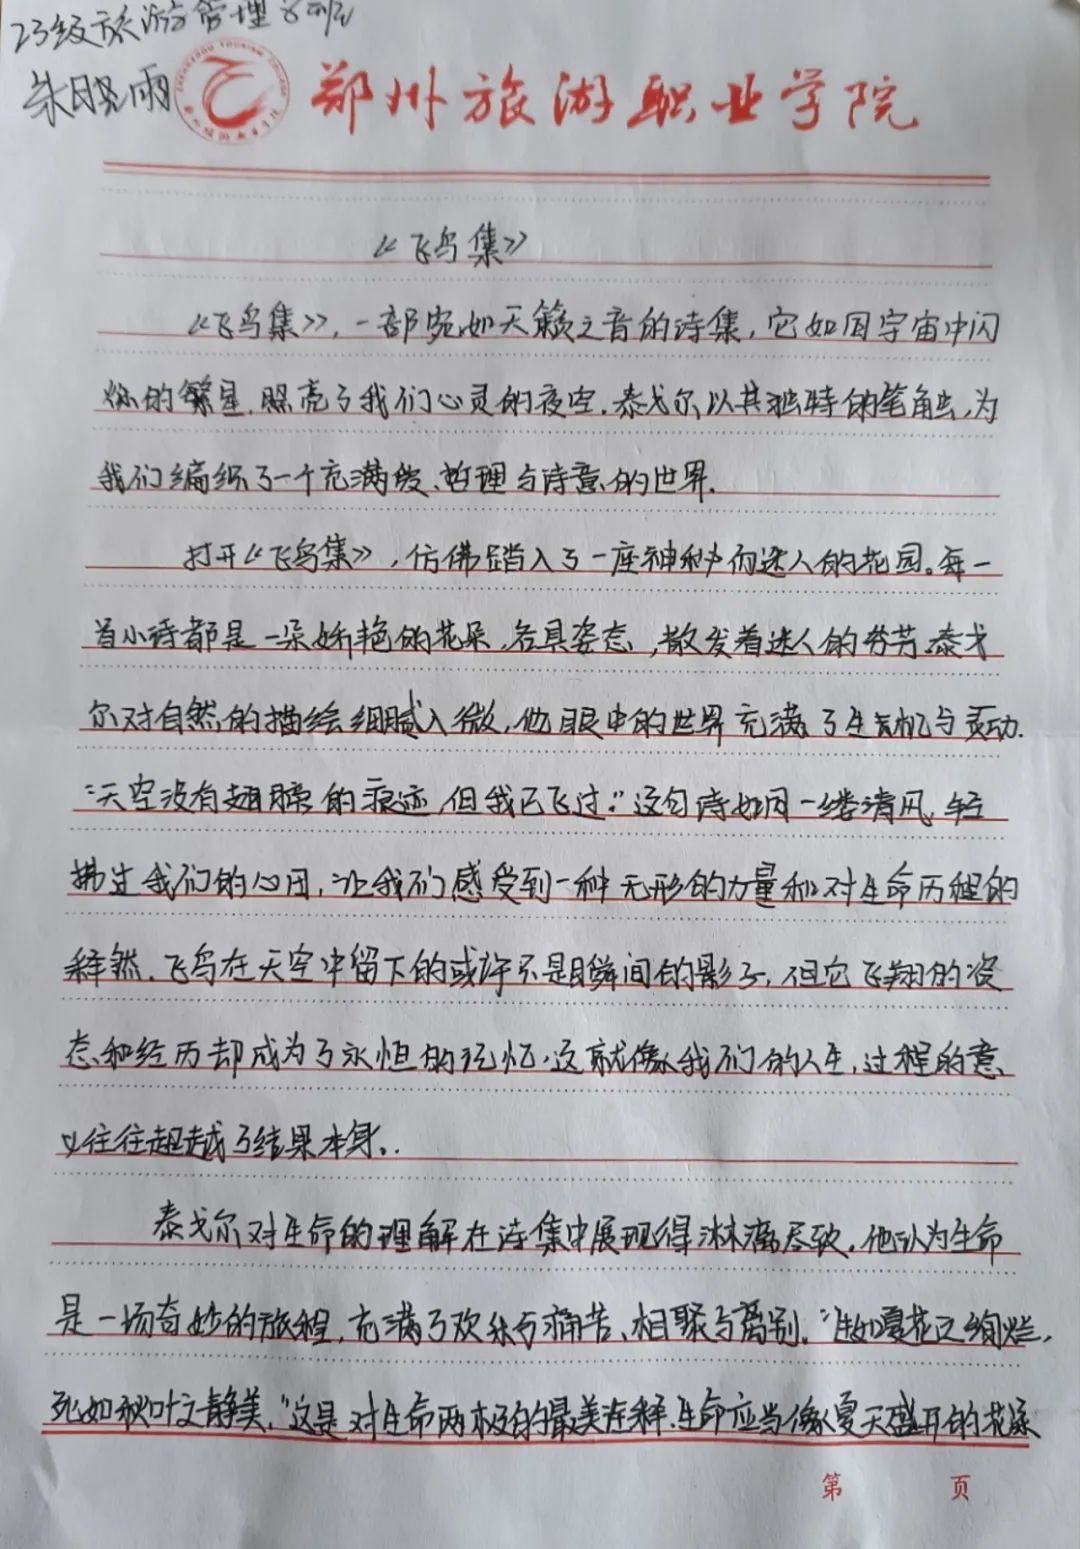 23级旅游管理8班
朱晓雨
郑州旅游职业学院
ZHENGZHOU TOURISM COLLEGE
《飞鸟集》
《飞鸟集》,一部宛如天籁之音的诗集,它如同宇宙中闪
烁的繁星,照亮了我们心灵的夜空.泰戈尔以其独特的笔触,为
我们编织了一个充满爱、哲理与诗意的世界.
打开《飞鸟集》,仿佛踏入了一座神秘而迷人的花园。每一
首小诗都是一朵娇艳的花朵,各具姿态,散发着迷人的芬芳.泰戈
尔对自然的描绘细腻入微,他眼中的世界充满了生机与灵动.
“天空没有翅膀的痕迹,但我已飞过.”这句诗如同一缕清风,轻
拂过我们的心田,让我们感受到一种无形的力量和对生命历程的
释然.飞鸟在天空中留下的或许不是瞬间的影子,但它飞翔的姿
态和经历却成为了永恒的记忆.这就像我们的人生,过程的意
义往往超越了结果本身。.
泰戈尔对生命的理解在诗集中展现得淋漓尽致.他认为生命
是一场奇妙的旅程,充满了欢乐与痛苦、相聚与离别.“生如夏花之绚烂,
死如秋叶之静美.”这是对生命两极的最美诠释.生命应当像夏天盛开的花朵
第 页